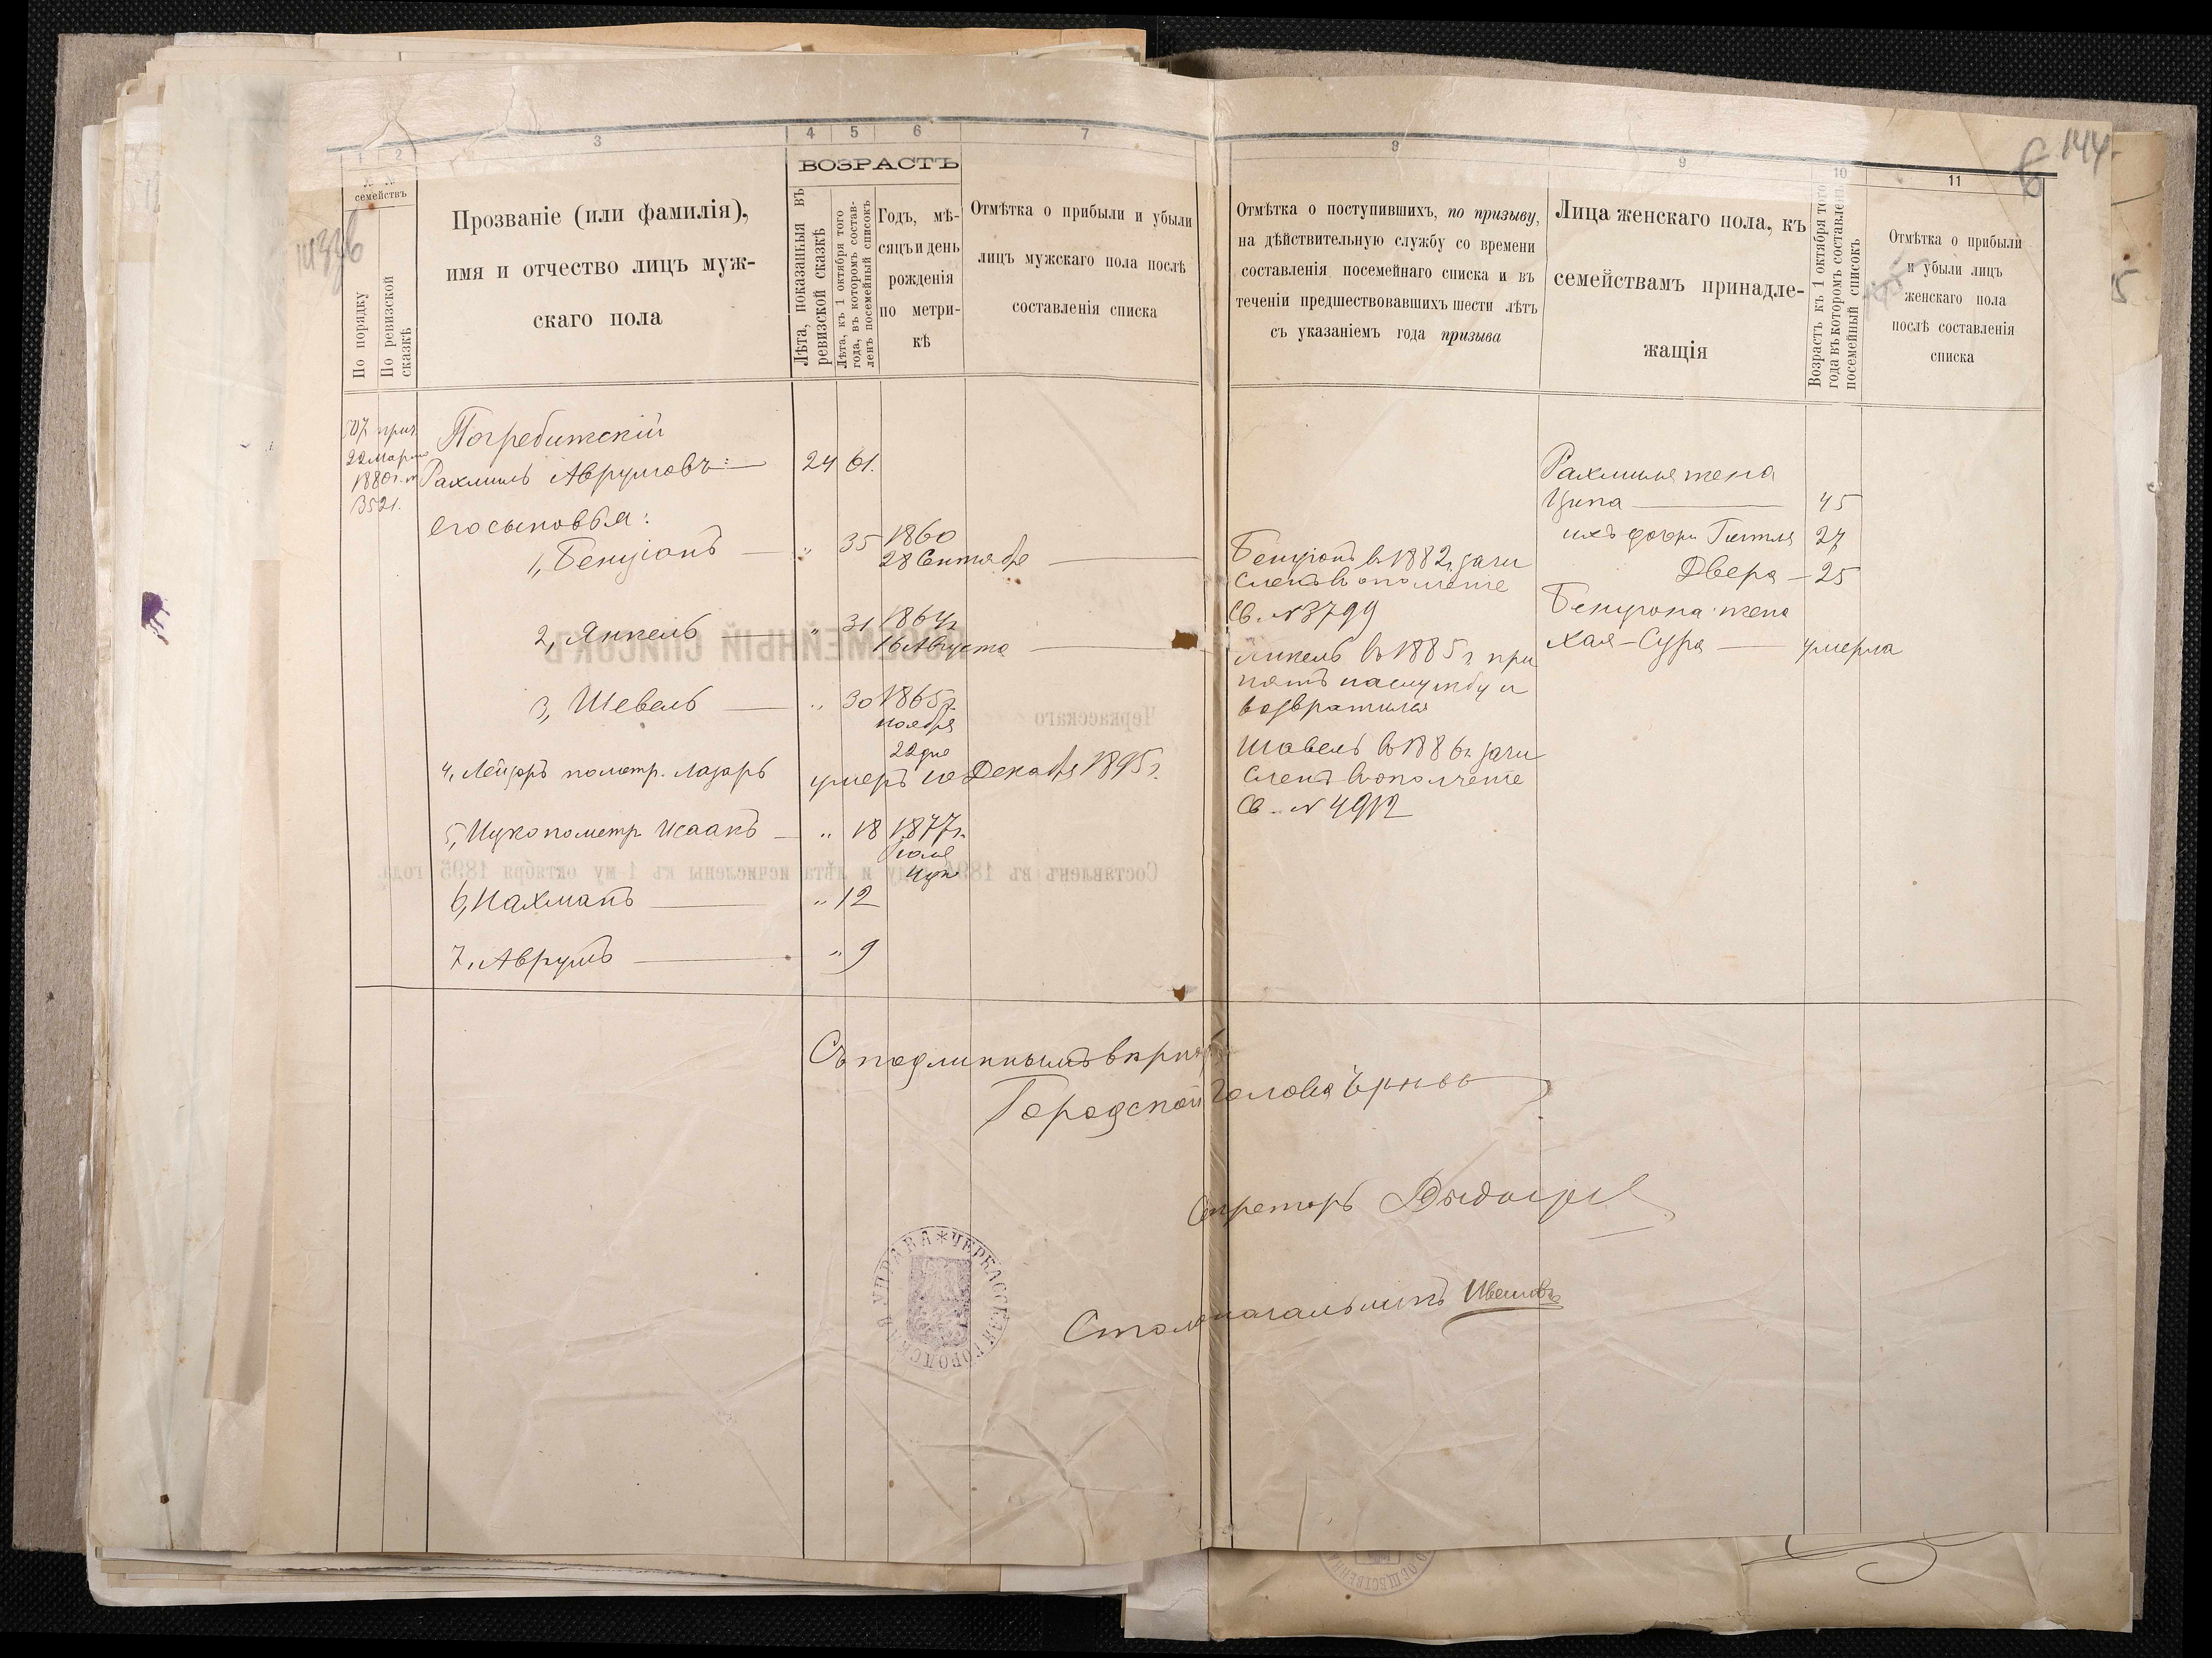 1
2
3
4
5
6
7
№ №
семействъ
По порядку
По ревизской сказкѣ
Прозваніе (или фамилія),
имя и отчество лицъ муж-
скаго пола
ВОЗРАСТЪ
Лѣта, показанныя въ
ревизской сказкѣ
Лѣта, къ 1 октября того
года, въ которомъ состав-
ленъ посемейный списокъ
Годъ, мѣ-
сяцъ и день
рожденія
по метри-
кѣ
Отмѣтка о прибыли и убыли
лицъ мужскаго пола послѣ
составленія списка
прич.
22 Марта
1880 г.
3521.
Погребитскій
Рахмиль Аврумовъ: 24 61.
его сыновья:
1, Бенціонъ " 35 1860
28 Сентября
2, Янкель " 31 1864 г.
16 Августа
3, Шевель " 30 1865 г.
ноября
22 дня
4, Лейзоръ пометр. Лазарь умеръ 10 Декабря 1895 г.
5, Ицко пометр Исаакъ " 18 1877 г.
6, Нахманъ " 12
7, Аврумъ " 9
Съ подлиннымъ вѣрно
Городской Голова
Секретарь
Столоначальникъ
ЧЕРКАССКАЯ ГОРОДСКАЯ УПРАВА
8
9
10
11
144
Отмѣтка о поступившихъ, по призыву,
на дѣйствительную службу со времени
составленія посемейнаго списка и въ
теченіи предшествовавшихъ шести лѣтъ
съ указаніемъ года призыва
Лица женскаго пола, къ
семействамъ принадле-
жащія
Возрастъ къ 1 октября того
года въ которомъ составленъ
посемейный списокъ
Отмѣтка о прибыли
и убыли лицъ
женскаго пола
послѣ составленія
списка
Бенціонъ въ 1882 г. зачи
сленъ в ополченіе
Св. № 3799
Янкель въ 1885 г. при
нятъ на службу и
возвратился
Шавель въ 1886 г. зачи
сленъ в ополченіе
Св. № 4912
Рахмиля жена
Ципа 45
ихъ дочери Гитля 27
Двера 25
Бенціона жена
Хая-Сура умерла
ПОСЕМЕЙНЫЙ СПИСОКЪ
Черкасскаго